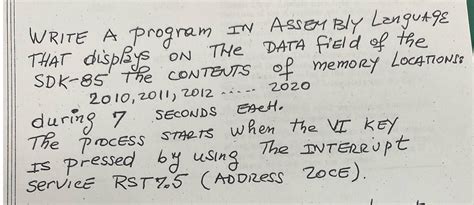 WRITE A program IN ASSEMBly LANGUAGE
THAT displays ON THE DATA field of the
SDK-85 The CONTENTS of memory LOCATIONS
2010, 2011, 2012 ..... 2020
during 7 SECONDS EACH.
The process STARTS when the VI KEY
IS pressed by using The INTERRUPT
service RST7.5 (ADDRESS 20CE).